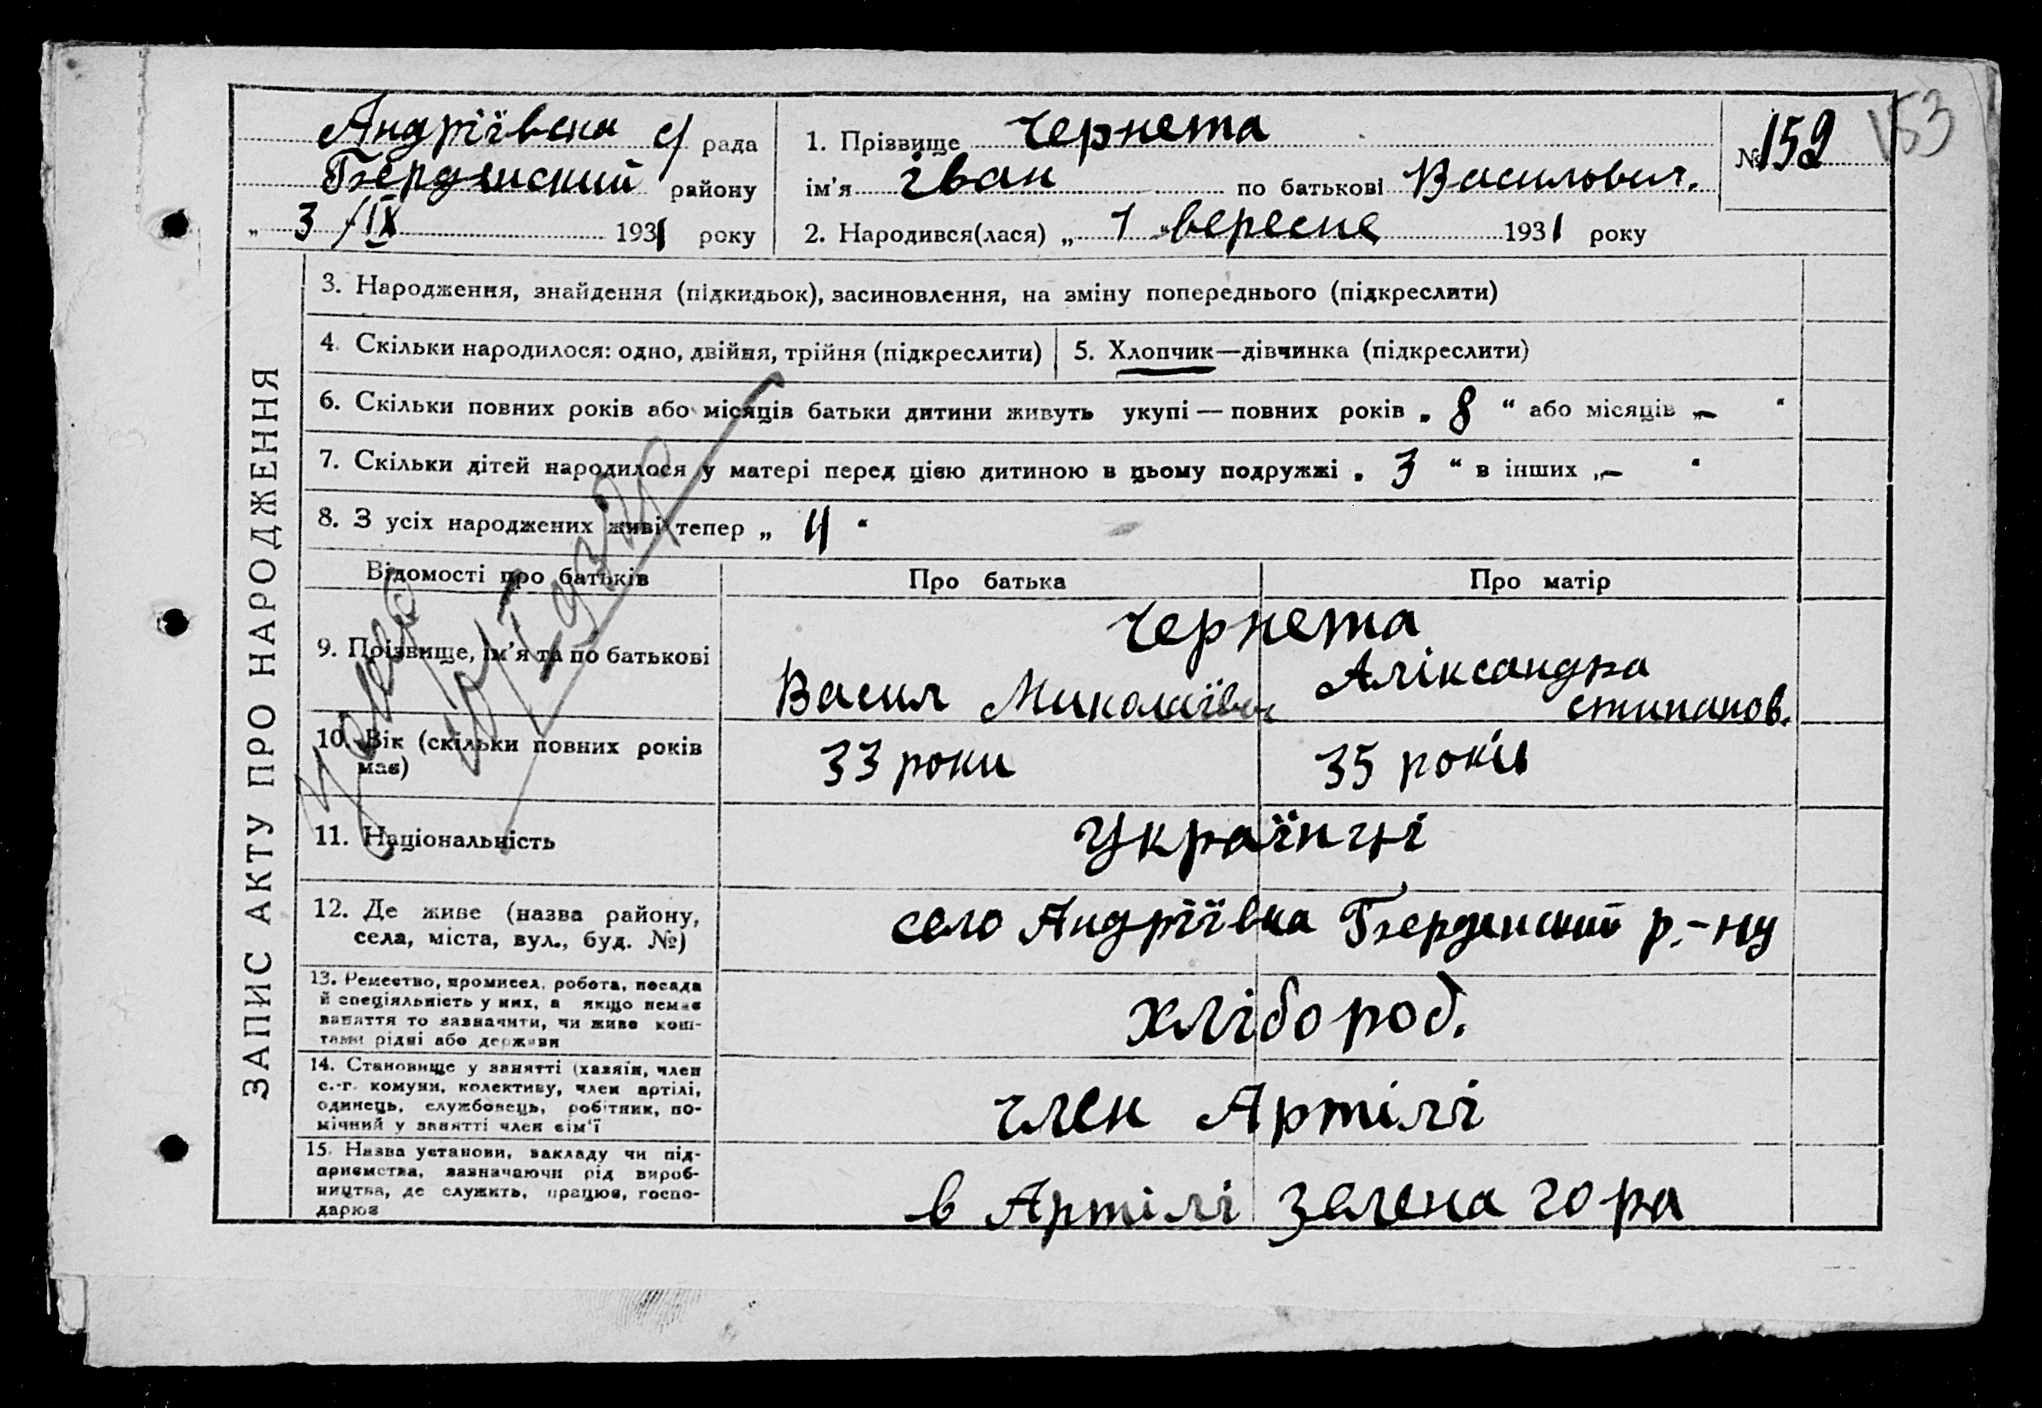 Андріївська с/ рада
Бердянський району
„ 3 /IX 1931 року
1. Прізвище Чернета
ім'я Іван по батькові Василович.
2. Народився(лася) „ 1 " вересня 1931 року
№ 159
153
ЗАПИС АКТУ ПРО НАРОДЖЕННЯ
3. Народження, знайдення (підкидьок), засиновлення, на зміну попереднього (підкреслити)
4. Скільки народилося: одно, двійня, трійня (підкреслити)
5. Хлопчик—дівчинка (підкреслити)
6. Скільки повних років або місяців батьки дитини живуть укупі — повних років „ 8 “ або місяців „ – “
7. Скільки дітей народилося у матері перед цією дитиною в цьому подружжі „ 3 “ в інших „ – “
8. З усіх народжених живі тепер „ 4 “
Відомості про батьків
Про батька
Про матір
9. Прізвище, ім'я та по батькові
Чернета
Васил Миколаївич
Аліксандра
стипанов.
10. Вік (скільки повних років
має)
33 роки
35 років
11. Національність
Українці
12. Де живе (назва району,
села, міста, вул., буд. №)
село Андріївка Бердянський р.-ну
13. Ремество, промисел, робота, посада
й спеціяльність у них, а якщо немає
заняття то зазначити, чи живе кош-
тами рідні або держави
хлібороб.
14. Становище у занятті (хазяїн, член
с.-г. комуни, колективу, член артілі,
одинець, службовець, робітник, по-
мічний у занятті член сім'ї
член Артілі
15. Назва установи, закладу чи під-
приємства, зазначаючи рід вироб-
ництва, де служить, працює, госпо-
дарює
в Артілі Зелена гора